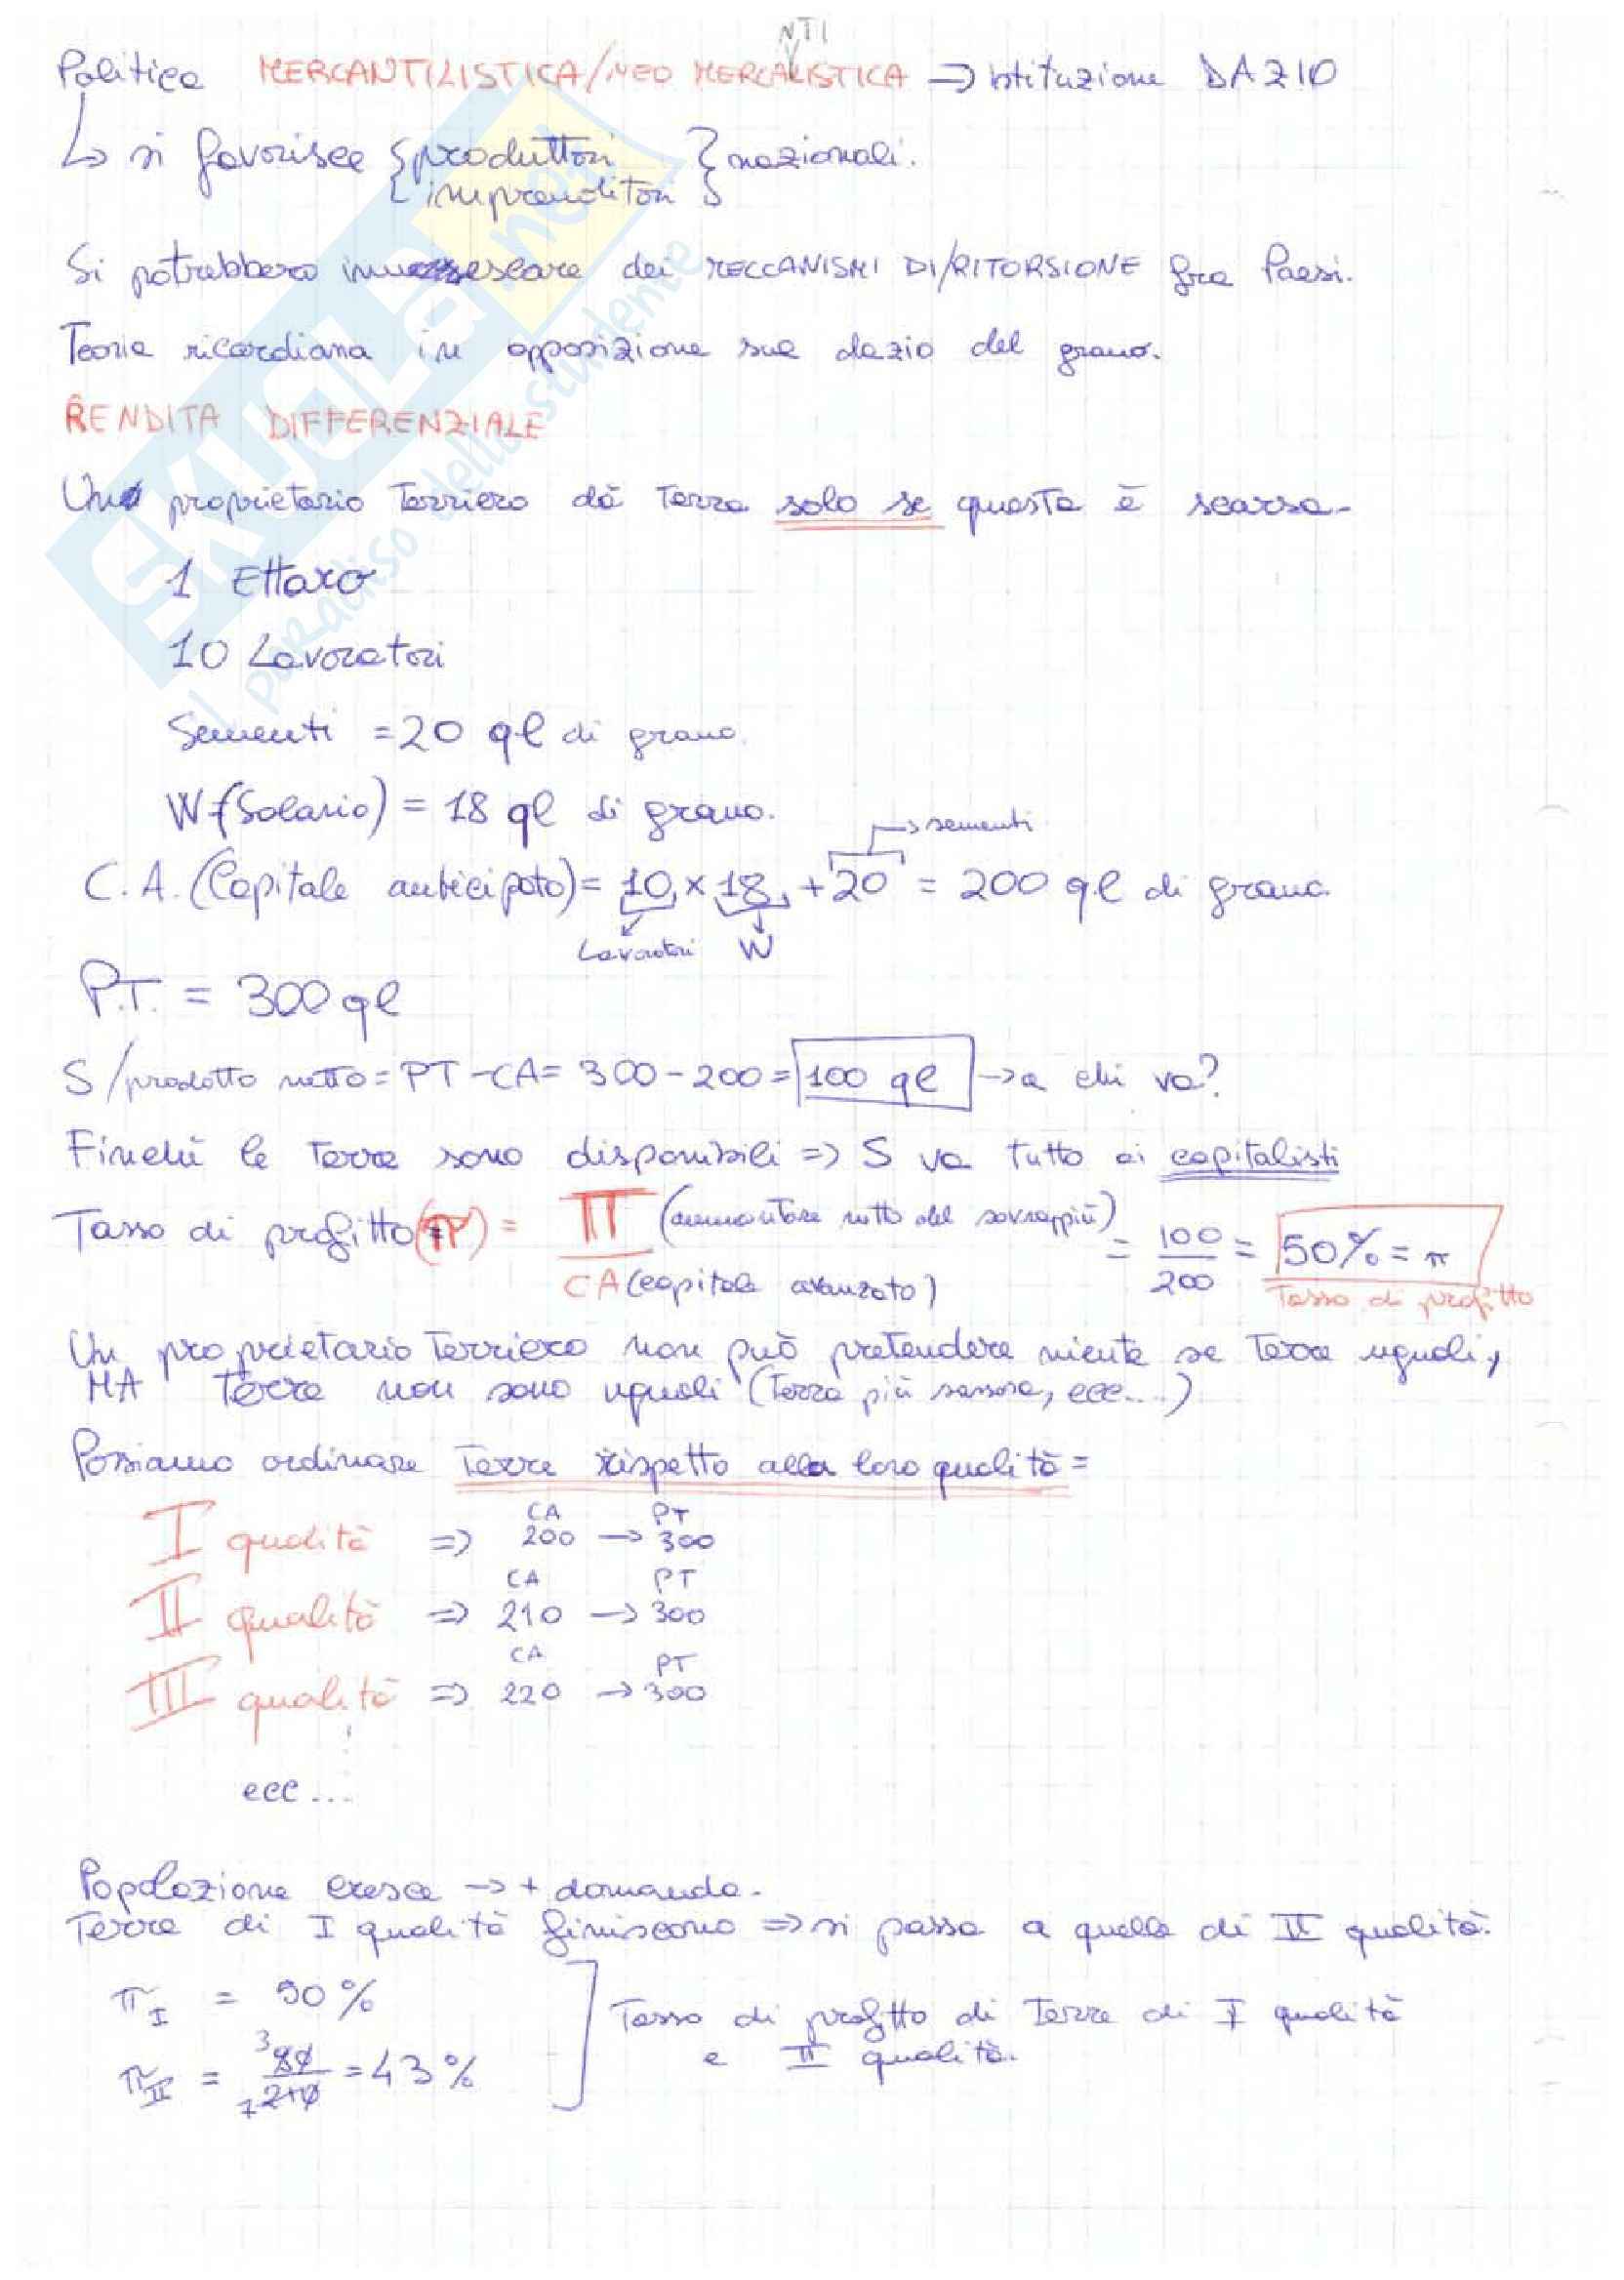 NTI
Politica MERCANTILISTICA/NEO MERCALISTICA => istituzione DAZIO
↳ si favorisce { produttori imprenditori } nazionali.
Si potrebbero innescare dei MECCANISMI DI/RITORSIONE fra Paesi.
Teoria ricardiana in opposizione sul dazio del grano.
RENDITA DIFFERENZIALE
Un proprietario terriero dà terra solo se questa è scarsa.
1 Ettaro
10 Lavoratori
Sementi = 20 ql di grano.
W (Salario) = 18 ql di grano.
→ sementi
C.A. (Capitale anticipato) = 10 x 18 + 20 = 200 ql di grano.
Lavoratori W
P.T. = 300 ql
S/prodotto netto = PT - CA = 300 - 200 = 100 ql → a chi va?
Finché le terre sono disponibili => S va tutto ai capitalisti
Tasso di profitto (π) = Π (ammontare netto del sovrappiù) / CA (capitale avanzato) = 100/200 = 50% = π
Tasso di profitto
Un proprietario terriero non può pretendere niente se terre uguali,
MA terre non sono uguali (terra più sassosa, ecc....)
Possiamo ordinare terre rispetto alla loro qualità =
CA PT
I qualità => 200 → 300
CA PT
II qualità => 210 → 300
CA PT
III qualità => 220 → 300
ecc...
Popolazione cresce → + domanda.
Terre di I qualità finiscono => si passa a quelle di II qualità.
π I = 50%
π II = 3 90 / 7 210 = 43%
Tasso di profitto di terre di I qualità
e II qualità.
SKUOLA.net
Il paradiso dello studente